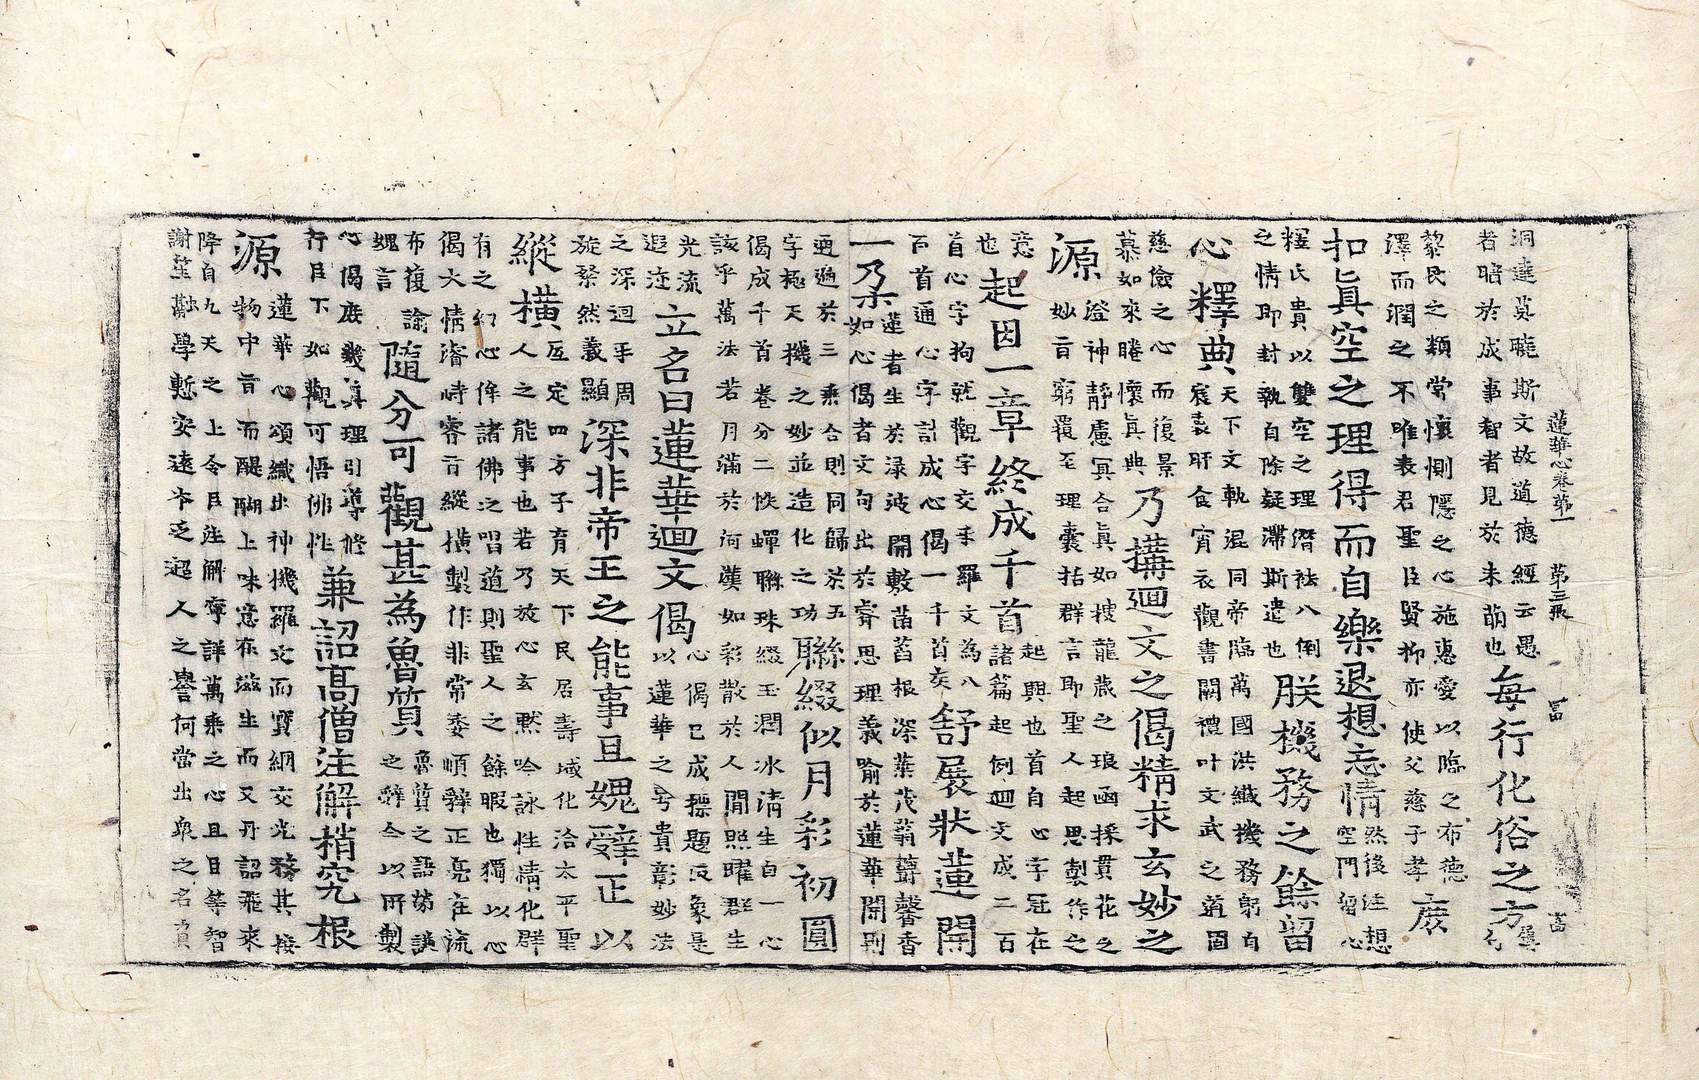 蓮華心卷第一 第三張 富 富
洞達莫曉斯文故道德經云愚
者暗於成事智者見於未萌也
每行化俗之方
黎民之類常懷惻隱之心施惠愛以臨之布德
澤而潤之不唯表君聖臣賢抑亦使父慈子孝
庶
扣眞空之理得而自樂退想忘情
然後注想
空門留心
釋氏貴以雙空之理緇袪八倒
之情即封執自除疑滯斯遣也
朕機務之餘留
心釋典
天下文軌混同帝臨萬國洪纖機務躬自
宸衷旰食宵衣觀書闢禮叶文武之道固
慈儉之心而復景
慕如來睠懷眞典
乃搆廻文之偈精求玄妙之
源
澄神靜慮冥合眞如披龍藏之琅函採貫花之
妙旨窮覆至理囊括群言即聖人起思製作之
意
也
起因一章終成千首
起興也首自心字冠在
諸篇起例廻文成二百
首心字拘就觀字交手羅文為八
百首通心字計成心偈一千首矣
舒展狀蓮開
一朶
蓮者生於渌波開敷菡萏根深葉茂蓊欝馨香
如心偈者文句出於睿思理義喻於蓮華開則
通遍於三乘合則同歸於五
字極天機之妙並造化之功
聯綴似月彩初圓
偈成千首卷分二帙蟬聯珠綴玉潤冰清生自一心
該乎萬法若月滿於河漢如彩散於人間照曜群生
光流
遐迩
立名曰蓮華廻文偈
心偈已成摽題反象是
以蓮華之号貴彰妙法
之深迴手周
旋粲然義顯
深非帝王之能事且媿辝正以
縱橫
互定四方子育天下民居壽域化洽太平聖
人之能事也若乃放心玄默吟詠性情化群
有之幻心侔諸佛之唱道則聖人之餘暇也獨以心
偈大情濬時睿旨縱橫製作非常委順辝正亮在流
布復諭
媿言
隨分可觀甚為魯質
魯質之語蒭
之辝今以所製
心偈庶幾真理引導修
行臣下如觀可悟佛性
兼詔高僧注解稍究根
源
蓮華心頌織出神機羅文而寶網交光務其接
物中旨而醍醐上味意在滋生而又丹詔飛來
降自九天之上令臣注解奪詳萬乘之心且日等智
謝笙融學慙安遠本乏迢人之譽何當出眾之名